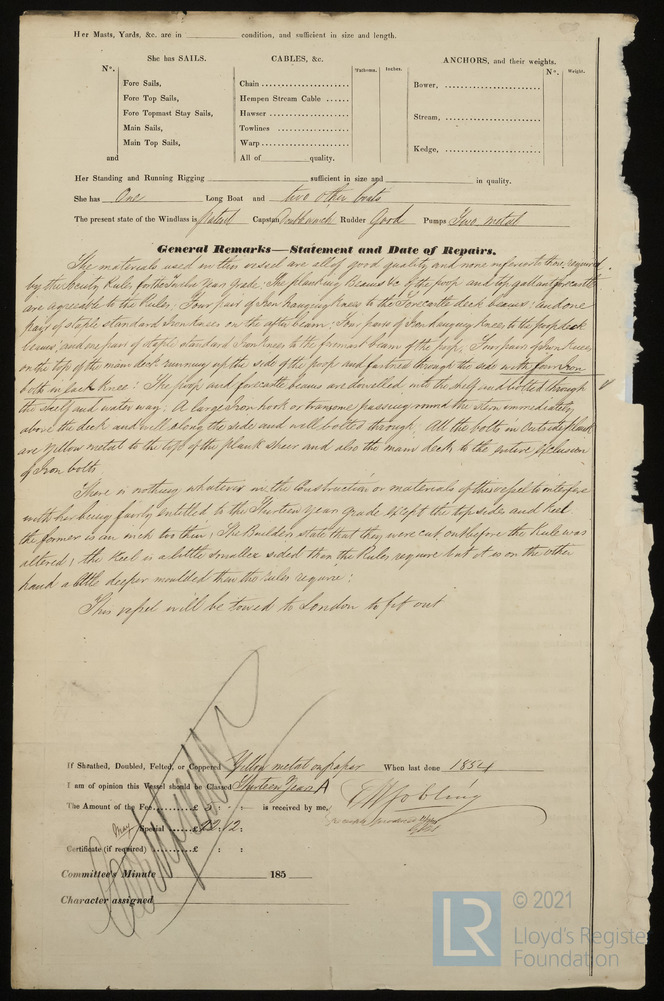 Her Masts, Yards, &c. are in condition, and sufficient in size and length.
She has SAILS. CABLES, &c. Fathoms. Inches. ANCHORS, and their weights.
N°. N°. Weight.
Fore Sails, Chain Bower,
Fore Top Sails, Hempen Stream Cable
Fore Topmast Stay Sails, Hawser Stream,
Main Sails, Towlines
Main Top Sails, Warp Kedge,
and All of quality.
Her Standing and Running Rigging sufficient in size and in quality.
She has One Long Boat and two other boats
The present state of the Windlass is Patent Capstan Rudder Good Pumps Two metal
General Remarks—Statement and Date of Repairs.
The materials used in this vessel are all of good quality and none inferior to those required
by the Rules for the thirteen year grade. The planking Beams &c of the poop and top gallant forecastle
are agreeable to the Rules; Four pair of Iron hanging Knees to the Forecastle deck beams; and one
pair of staple standard Iron knees on the after beam; Four pairs of Iron hanging knees to the poop deck
beams, and one pair of staple standard Iron knees to the foremost beam of the poop, Four pairs of Iron Knees
on the top of the main deck running up the side of the poop and fastened through the side with four Iron
bolts in each Knee: The poop and forecastle beams are dowelled into the shelf and bolted through
the shelf and water way; A large Iron hook or transome passing round the stern immediately
above the deck and well along the side and well bolted through; All the bolts in Outside plank
are Yellow metal to the top of the plank sheer and also the main deck, to the entire exclusion
of Iron bolts
There is nothing whatever in the Construction or materials of this vessel to interfere
with her being fairly entitled to the Thirteen year grade except the topsides and Keel
the former is an inch too thin, The Builders state that they were cut out before the Rule was
altered; the Keel is a little smaller sided than the Rules require but it is on the other
hand a little deeper moulded than the rules require:
This vessel will be towed to London to fit out
If Sheathed, Doubled, Felted, or Coppered Yellow metal on paper When last done 1854
I am of opinion this Vessel should be Classed Thirteen Years A
The Amount of the Fee £ 5 : : is received by me,
May Special £ 22 : 12 :
Certificate (if required) £ : :
Committee's Minute 185
Character assigned
© 2021
LR
Lloyd's Register
Foundation